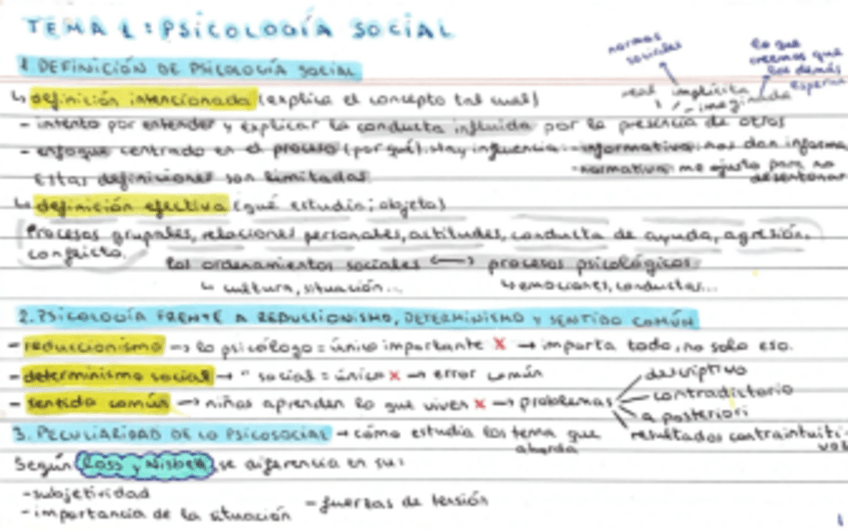 TEMA 1: PSICOLOGÍA SOCIAL
1. DEFINICIÓN DE PSICOLOGÍA SOCIAL
normas sociales
lo que creemos que los demás esperan
↳ definición intencionada (explica el concepto tal cual)
real implícita imaginada
- intento por entender y explicar la conducta influida por la presencia de otros
- enfoque centrado en el proceso (por qué). Hay influencia: - informativa: nos dan informa
- normativa: me ajusto para no desentonar
Estas definiciones son limitadas
↳ definición efectiva (qué estudia; objeto)
Procesos grupales, relaciones personales, actitudes, conducta de ayuda, agresión, conflicto.
los ordenamientos sociales ⟷ procesos psicológicos
↳ cultura, situación...
↳ emociones, conductas...
2. PSICOLOGÍA FRENTE A REDUCCIONISMO, DETERMINISMO Y SENTIDO COMÚN
- reduccionismo → lo psicólogo = único importante X → importa todo, no solo eso.
- determinismo social → " social = único X → error común
- sentido común → niños aprenden lo que viven X → problemas
descriptivo
contradictorio
a posteriori
resultados contraintuitivos
3. PECULIARIDAD DE LO PSICOSOCIAL → cómo estudia los tema que aborda
Según Ross y Nisbett se diferencia en su:
- subjetividad
- importancia de la situación
- fuerzas de tensión
1